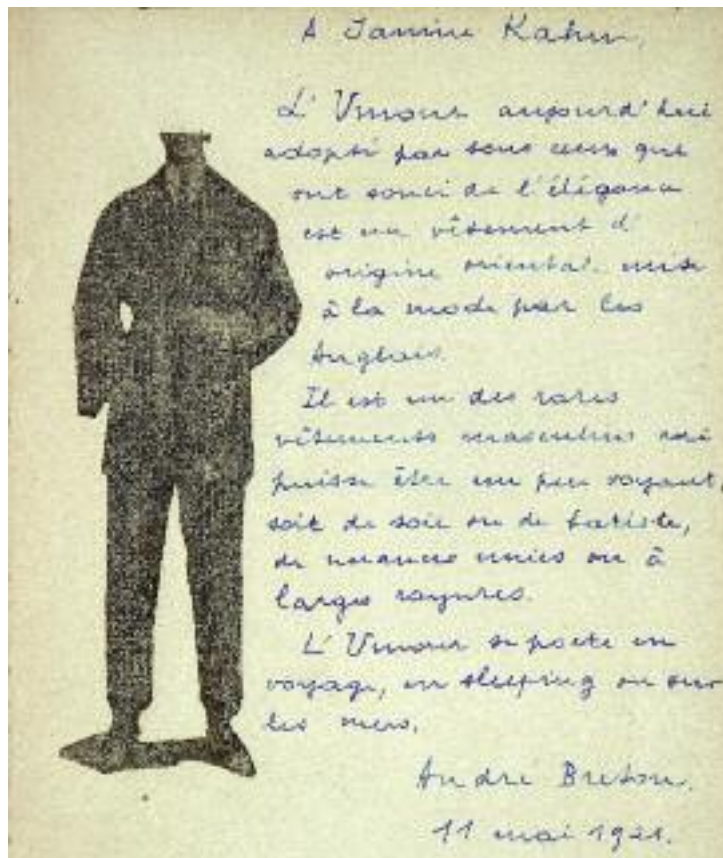 A Janine Kahn,
L'Umour aujourd'hui
adopté par tous ceux qui
ont souci de l'élégance
est un vêtement d'
origine orientale mise
à la mode par les
Anglais.
Il est un des rares
vêtements masculins qui
puisse être un peu voyant,
soit de soie ou de batiste,
de nuances unies ou à
larges rayures.
L'Umour se porte en
voyage, en sleeping ou sur
les mers.
André Breton.
11 mai 1921.